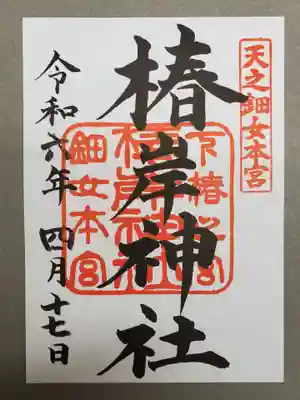 天之鈿女本宮
椿岸神社
下椿宮
椿岸神社
鈿女本宮
令和六年 四月十七日